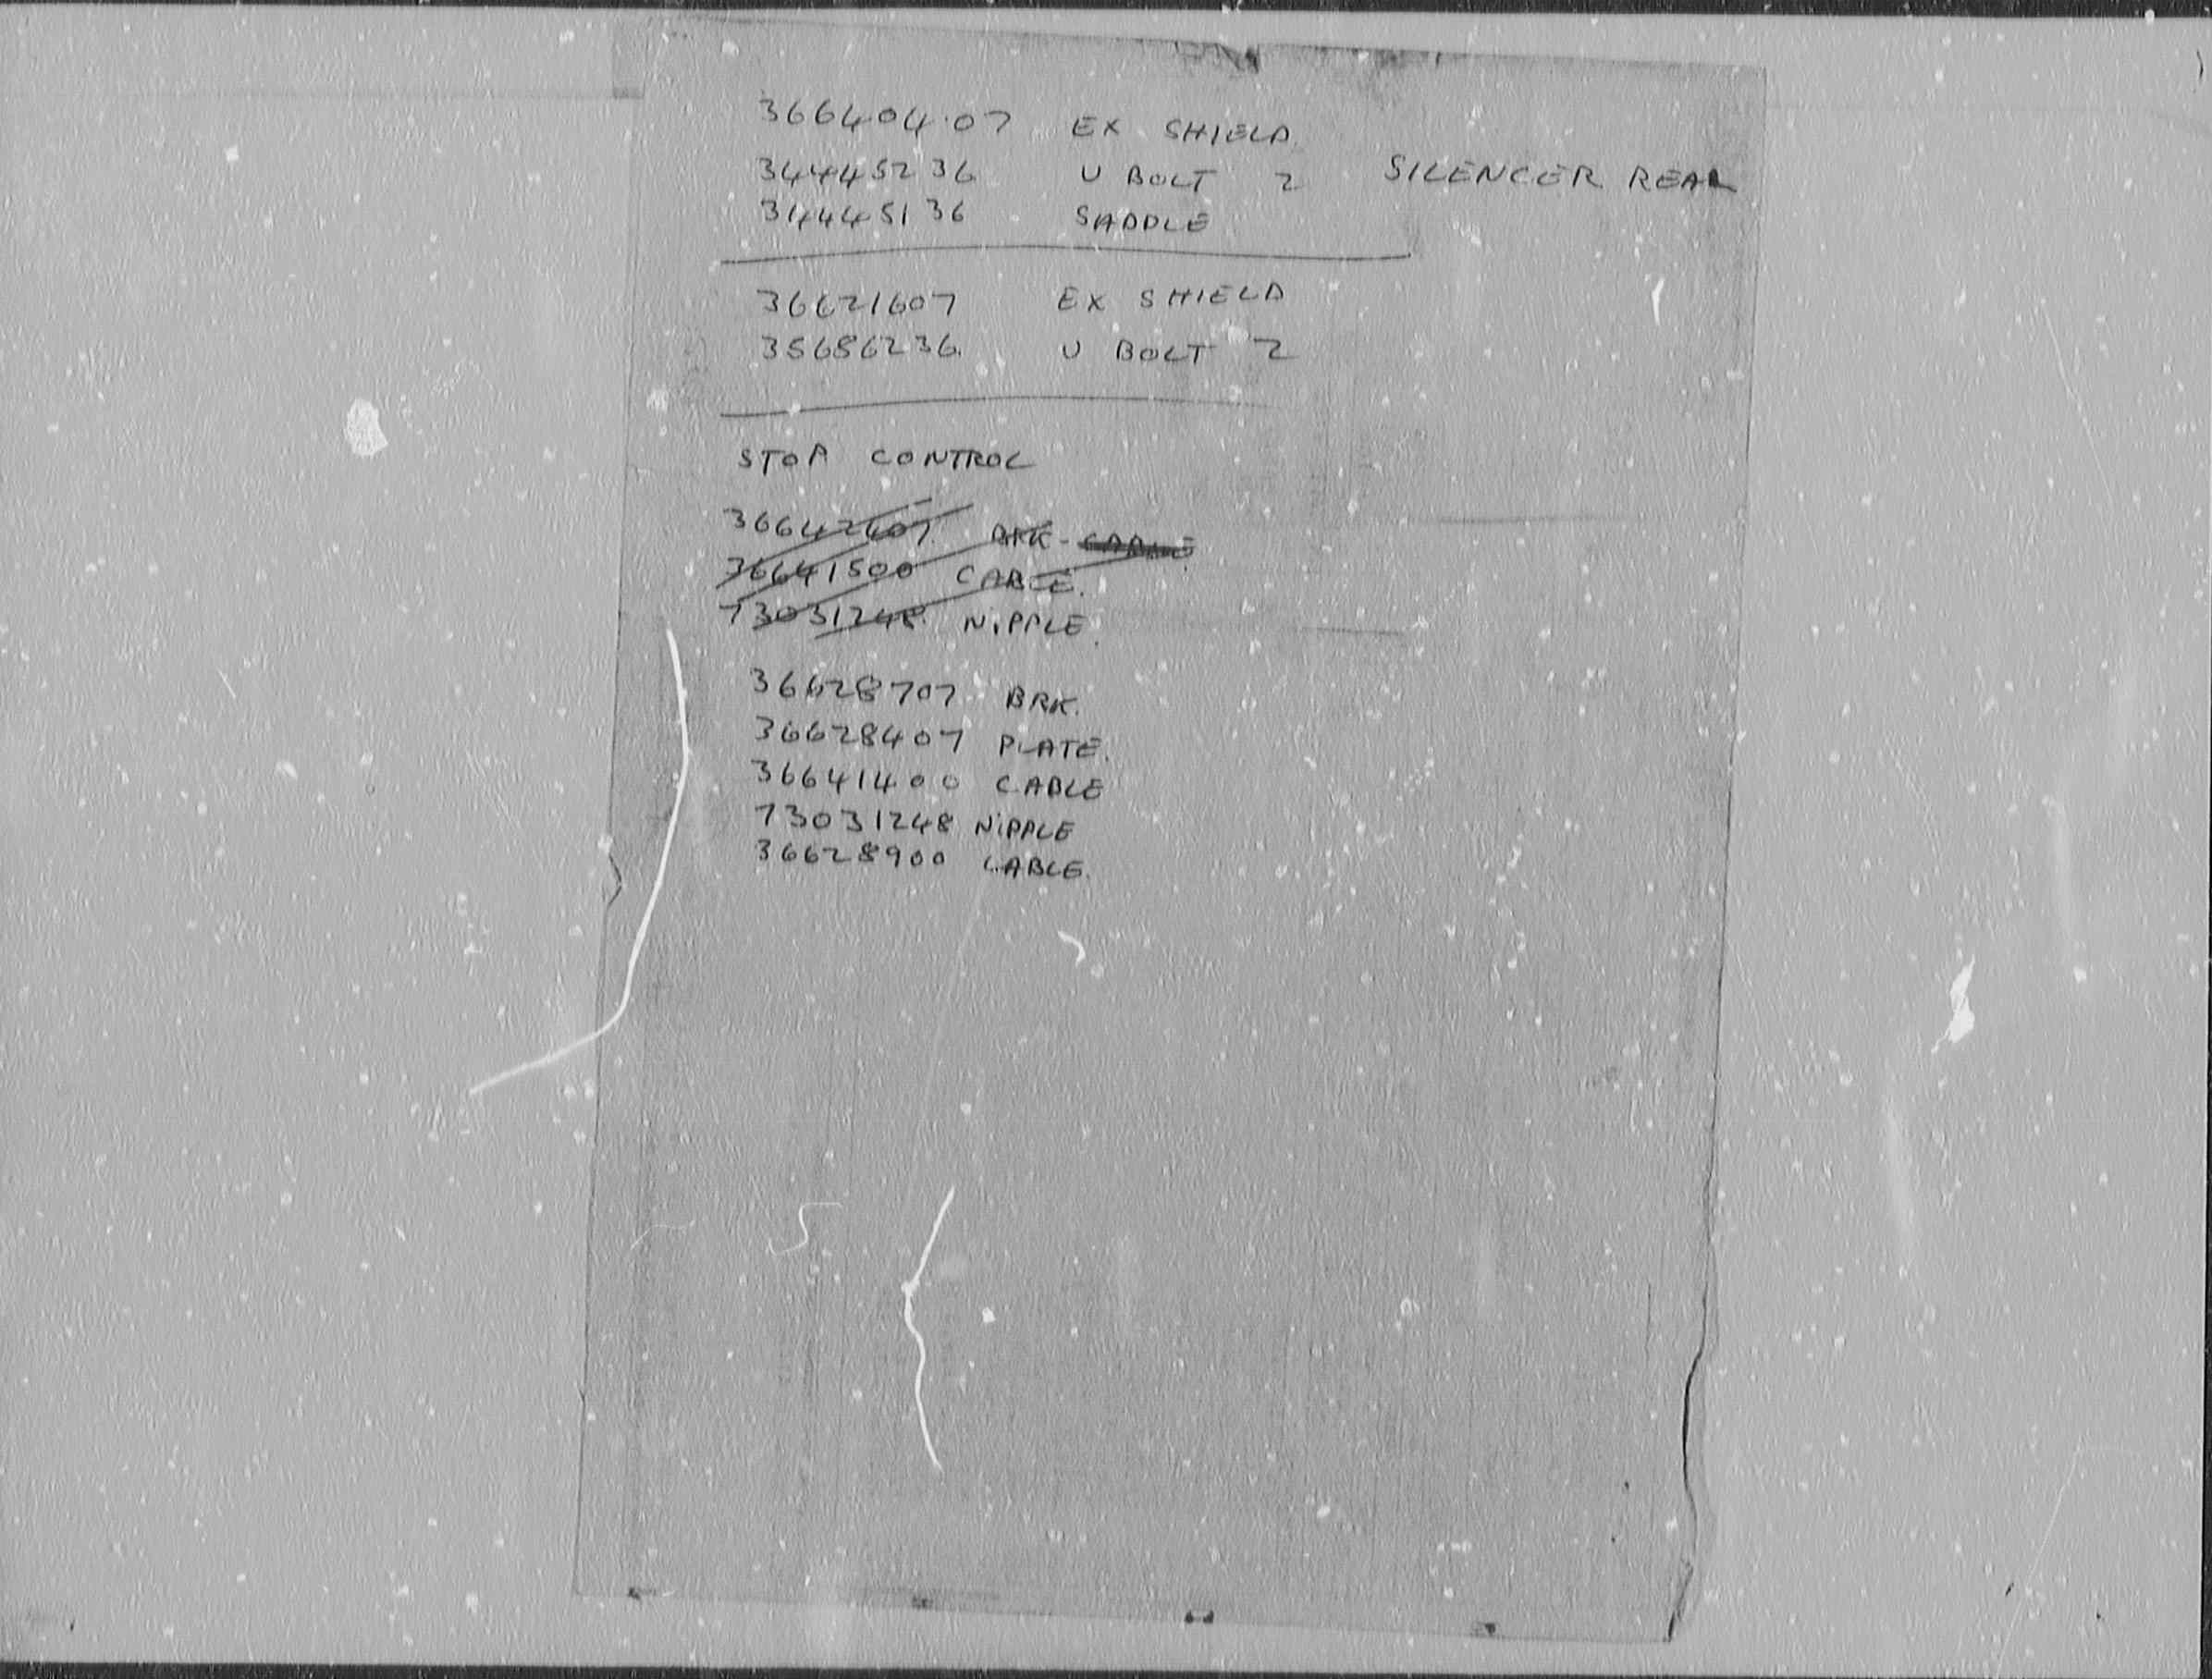 36640407 EX SHIELD
34445236 U BOLT 2 SILENCER REAR
34445136 SADDLE
36621607 EX SHIELD
35686236 U BOLT 2
STOP CONTROL
36642607 BRK - CABLE
36641500 CABLE.
73031248 NIPPLE.
36628707 BRK.
36628407 PLATE.
36641400 CABLE
73031248 NIPPLE
36628900 CABLE.